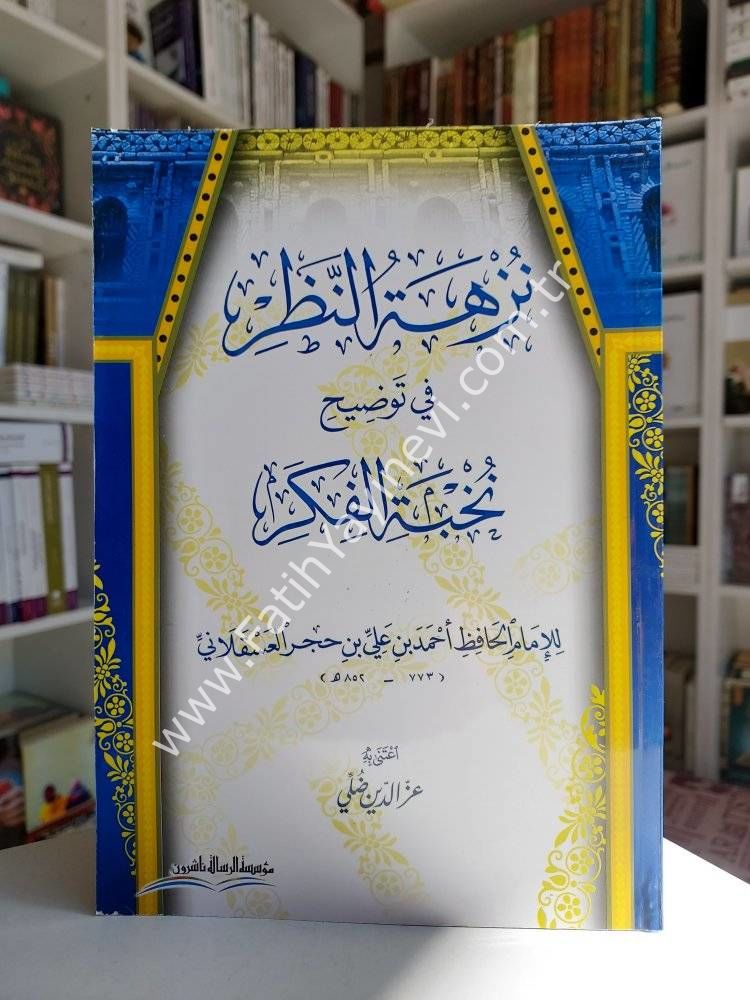 نُزْهَةُ النَّظَرِ
فِي تَوْضِيحِ
نُخْبَةِ الْفِكَرِ
لِلإِمَامِ الْحَافِظِ أَحْمَدَ بْنِ عَلِيِّ بْنِ حَجَرٍ الْعَسْقَلَانِيِّ
( ٧٧٣ - ٨٥٢ هـ )
اعْتَنَى بِهِ
عِزُّ الدِّينِ ضُلِّي
مؤسسة الرسالة ناشرون
www.FatihYayinevi.com.tr